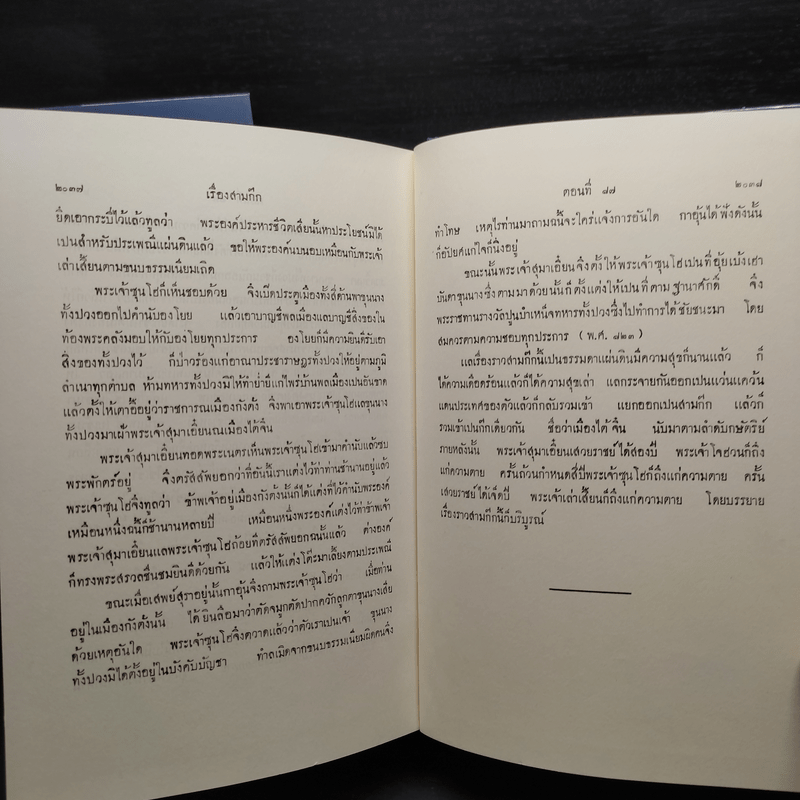 ๒๐๓๗ เรื่องสามก๊ก
ยึดเอากระบี่ไว้แล้วทูลว่า พระองค์ประหารชีวิตเสียนั้นหาประโยชน์มิได้
เปนสำหรับประเพณีแผ่นดินแล้ว ขอให้พระองค์นบนอบเหมือนกับพระเจ้า
เล่าเสี้ยนตามขนบธรรมเนียมเถิด
พระเจ้าซุนโฮก็เห็นชอบด้วย จึงเปิดประตูเมืองทั้งสี่ด้านพาขุนนาง
ทั้งปวงออกไปคำนับองโยย แล้วเอาบาญชีพลเมืองแลบาญชีสิ่งของใน
ท้องพระคลังมอบให้กับองโยยทุกประการ องโยยก็มีความยินดีรับเอา
สิ่งของทั้งปวงไว้ ก็ป่าวร้องแก่อาณาประชาราษฎรทั้งปวงให้อยู่ตามภูมิ
ลำเนาทุกตำบล ห้ามทหารทั้งปวงมิให้ทำย่ำยีแก่ไพร่บ้านพลเมืองเปนอันขาด
แล้วตั้งให้เตาอี้อยู่ว่าราชการณเมืองกังตั๋ง จึงพาเอาพระเจ้าซุนโฮแลขุนนาง
ทั้งปวงมาเฝ้าพระเจ้าสุมาเอี๋ยนณเมืองไต้จิ๋น
พระเจ้าสุมาเอี๋ยนทอดพระเนตรเห็นพระเจ้าซุนโฮเข้ามาคำนับแล้วซบ
พระพักตร์อยู่ จึงตรัสสัพยอกว่าที่อันนี้เราแต่งไว้ท่าท่านช้านานอยู่แล้ว
พระเจ้าซุนโฮจึงทูลว่า ข้าพเจ้าอยู่เมืองกังตั๋งนั้นก็ได้แต่งที่ไว้คำนับพระองค์
เหมือนหนึ่งฉนี้ก็ช้านานหลายปี เหมือนหนึ่งพระองค์แต่งไว้ท่าข้าพเจ้า
พระเจ้าสุมาเอี๋ยนแลพระเจ้าซุนโฮถ้อยทีตรัสสัพยอกฉนั้นแล้ว ต่างองค์
ก็ทรงพระสรวลชื่นชมยินดีด้วยกัน แล้วให้แต่งโต๊ะมาเลี้ยงตามประเพณี
ขณะเมื่อเสพย์สุราอยู่นั้นกาอุ้นจึงถามพระเจ้าซุนโฮว่า เมื่อท่าน
อยู่ในเมืองกังตั๋งนั้น ได้ยินลือมาว่าตัดจมูกตัดปากควักลูกตาขุนนางเสีย
ด้วยเหตุอันใด พระเจ้าซุนโฮจึงตวาดแล้วว่าตัวเราเปนเจ้า ขุนนาง
ทั้งปวงมิได้ตั้งอยู่ในบังคับบัญชา ทำลเมิดจากขนบธรรมเนียมผิดคนจึง
ตอนที่ ๘๗ ๒๐๓๘
ทำโทษ เหตุไรท่านมาถามฉนี้จะใคร่แจ้งการอันใด กาอุ้นได้ฟังดังนั้น
ก็อัปยศแก่ใจก็นิ่งอยู่
ขณะนั้นพระเจ้าสุมาเอี๋ยนจึงตั้งให้พระเจ้าซุนโฮเปนที่อุ้ยเบ้งเฮา
บันดาขุนนางซึ่งตามมาด้วยนั้นก็ตั้งแต่งให้เปนที่ตามฐานาศักดิ์ จึง
พระราชทานรางวัลปูนบำเหน็จทหารทั้งปวงซึ่งไปทำการได้ชัยชนะมา โดย
สมควรตามความชอบทุกประการ (พ.ศ. ๘๒๓)
แลเรื่องราวสามก๊กนี้เปนธรรมดาแผ่นดินมีความสุขก็นานแล้ว ก็
ได้ความเดือดร้อนแล้วก็ได้ความสุขเล่า แลกระจายกันออกเปนแว่นแคว้น
แดนประเทศของตัวแล้วก็กลับรวมเข้า แยกออกเปนสามก๊ก แล้วก็
รวมเข้าเปนก๊กเดียวกัน ชื่อว่าเมืองไต้จิ๋น นับมาตามลำดับกษัตริย์
ภายหลังนั้น พระเจ้าสุมาเอี๋ยนเสวยราชย์ได้สองปี พระเจ้าโจฮวนก็ถึง
แก่ความตาย ครั้นถ้วนกำหนดสี่ปีพระเจ้าซุนโฮก็ถึงแก่ความตาย ครั้น
เสวยราชย์ได้เจ็ดปี พระเจ้าเล่าเสี้ยนก็ถึงแก่ความตาย โดยบรรยาย
เรื่องราวสามก๊กนี้ก็บริบูรณ์